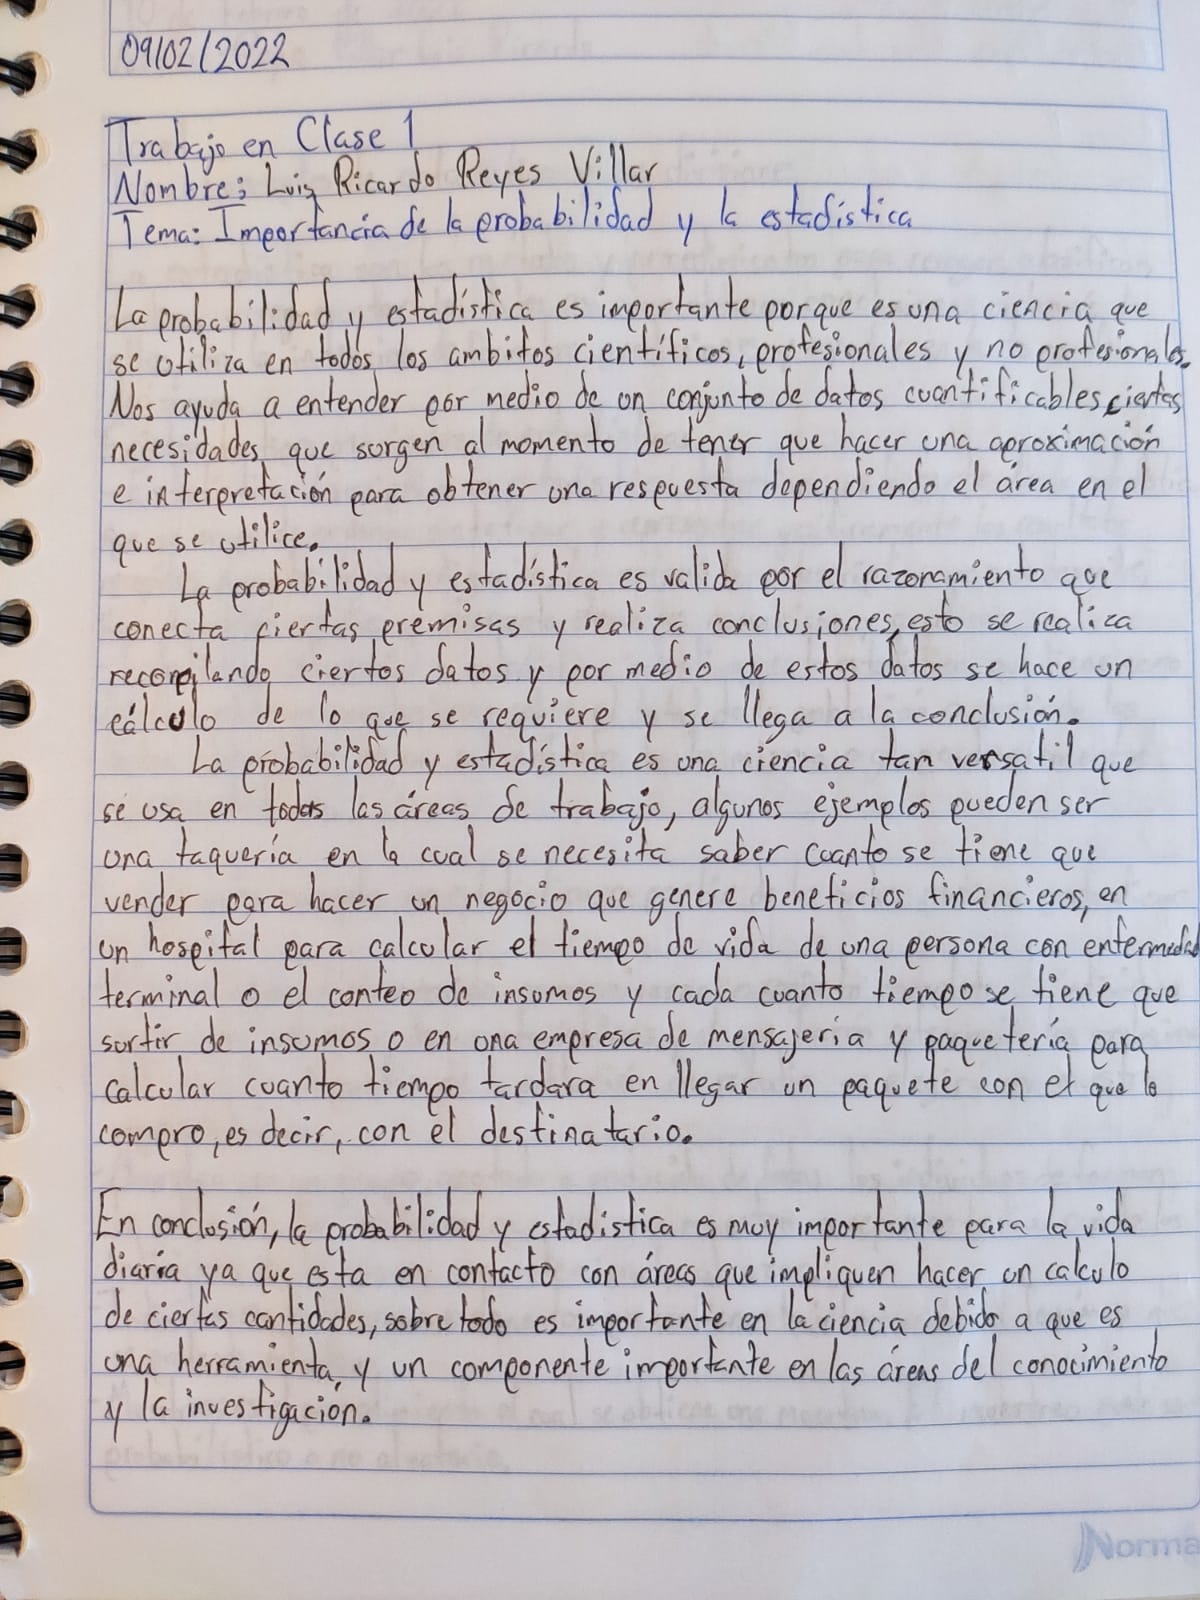 09/02/2022
Trabajo en Clase 1
Nombre: Luis Ricardo Reyes Villar
Tema: Importancia de la probabilidad y la estadística
La probabilidad y estadística es importante porque es una ciencia que
se utiliza en todos los ambitos científicos, profesionales y no profesionales.
Nos ayuda a entender por medio de un conjunto de datos cuantificables ciertas
necesidades que surgen al momento de tener que hacer una aproximación
e interpretación para obtener una respuesta dependiendo el área en el
que se utilice.
La probabilidad y estadística es valida por el razonamiento que
conecta ciertas premisas y realiza conclusiones, esto se realiza
recopilando ciertos datos y por medio de estos datos se hace un
cálculo de lo que se requiere y se llega a la conclusión.
La probabilidad y estadística es una ciencia tan versatil que
se usa en todas las áreas de trabajo, algunos ejemplos pueden ser
una taquería en la cual se necesita saber cuanto se tiene que
vender para hacer un negocio que genere beneficios financieros, en
un hospital para calcular el tiempo de vida de una persona con enfermedad
terminal o el conteo de insumos y cada cuanto tiempo se tiene que
surtir de insumos o en una empresa de mensajería y paquetería para
calcular cuanto tiempo tardara en llegar un paquete con el que lo
compro, es decir, con el destinatario.
En conclusión, la probabilidad y estadística es muy importante para la vida
diaria ya que esta en contacto con áreas que impliquen hacer un calculo
de ciertas cantidades, sobre todo es importante en la ciencia debido a que es
una herramienta y un componente importante en las áreas del conocimiento
y la investigación.
Norma